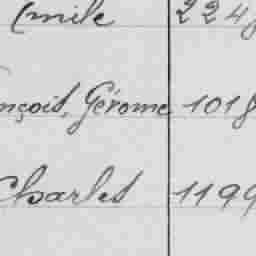 Emile 224
nçois, Gérome 1018
Charles 1199